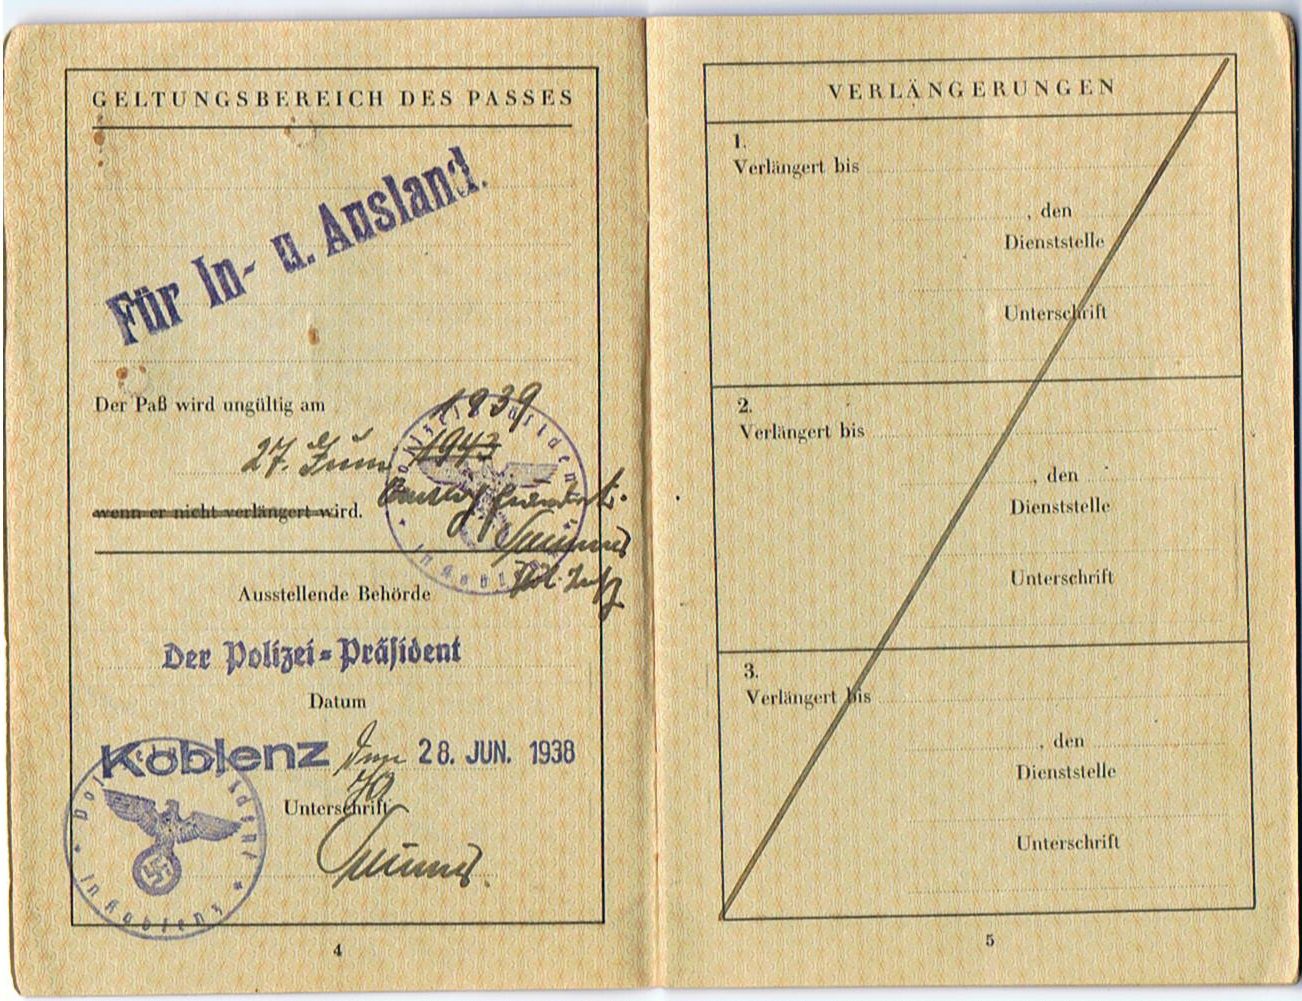 GELTUNGSBEREICH DES PASSES
Für In- u. Ausland.
Der Paß wird ungültig am
1939
27. Juni 1943
wenn er nicht verlängert wird.
Ausstellende Behörde
Der Polizei=Präsident
Datum
Koblenz den 28. JUN. 1938
Unterschrift
in Koblenz
4
VERLÄNGERUNGEN
1.
Verlängert bis
, den
Dienststelle
Unterschrift
2.
Verlängert bis
, den
Dienststelle
Unterschrift
3.
Verlängert bis
, den
Dienststelle
Unterschrift
5